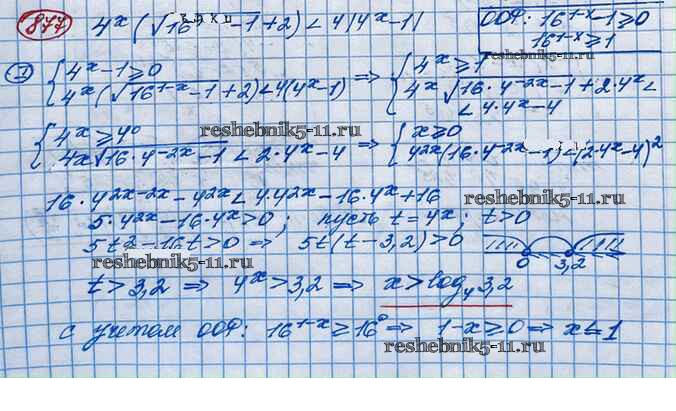 877 4^x (√16^(1-x) - 1 + 2) < 4|4^x - 1|
ООФ: 16^(1-x) - 1 ≥ 0
16^(1-x) ≥ 1
① { 4^x - 1 ≥ 0 ⇒ { 4^x ≥ 1
4^x (√16^(1-x) - 1 + 2) < 4(4^x - 1) 4^x √16 · 4^(-2x) - 1 + 2 · 4^x <
< 4 · 4^x - 4
{ 4^x ≥ 4^0 ⇒ { x ≥ 0
reshebnik5-11.ru
4^x √16 · 4^(-2x) - 1 < 2 · 4^x - 4 4^(2x) (16 · 4^(-2x) - 1) < (2 · 4^x - 4)^2
16 · 4^(2x-2x) - 4^(2x) < 4 · 4^(2x) - 16 · 4^x + 16
reshebnik5-11.ru
5 · 4^(2x) - 16 · 4^x > 0 ; пусть t = 4^x ; t > 0
5t^2 - 16t > 0 ⇒ 5t(t - 3,2) > 0
0 3,2
reshebnik5-11.ru
t > 3,2 ⇒ 4^x > 3,2 ⇒ x > log_4 3,2
с учетом ООФ: 16^(1-x) ≥ 16^0 ⇒ 1 - x ≥ 0 ⇒ x ≤ 1
reshebnik5-11.ru